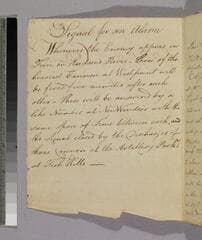 Signal for an Alarm
Whenever the Enemy appears in
Force in Hudsons River. Three of the
heaviest Cannon at Westpoint will
be fired five minutes after each
other – These will be answered by a
like Number at New Windsor with the
same space of Time between each, and
the Signal closed by the Discharge of
three Cannon at the Artillery Park
at Fish Kills —